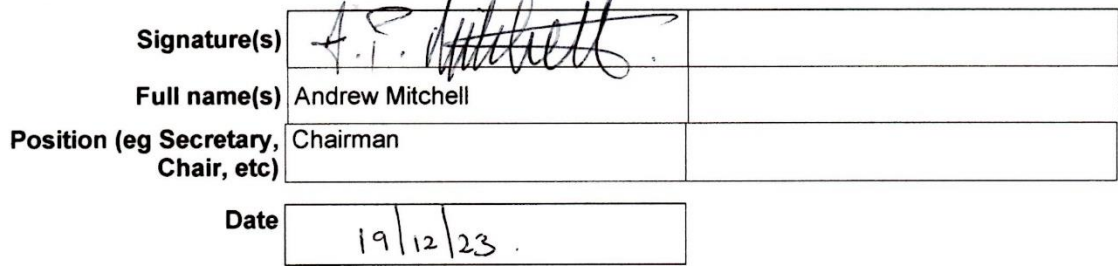 Signature(s) A.P. Mitchell
Full name(s) Andrew Mitchell
Position (eg Secretary, Chairman
Chair, etc)
Date 19/12/23.